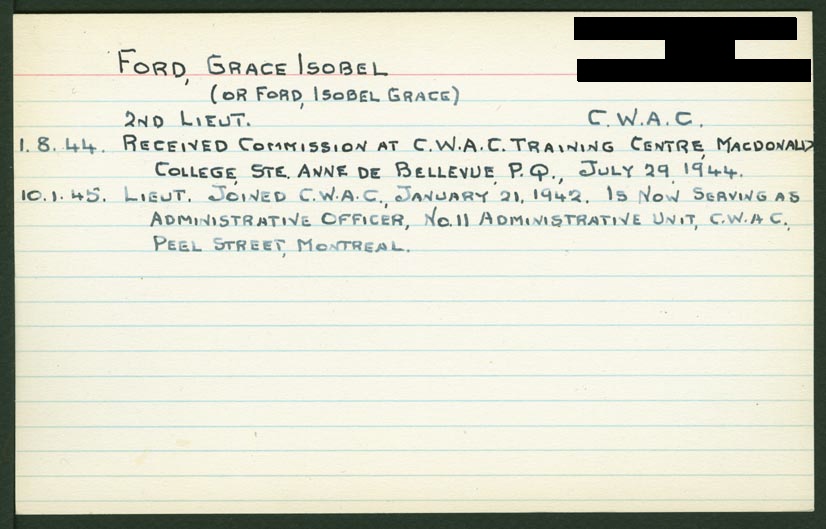 FORD, GRACE ISOBEL
(OR FORD, ISOBEL GRACE)
2ND LIEUT. C.W.A.C.
1.8.44. RECEIVED COMMISSION AT C.W.A.C. TRAINING CENTRE, MACDONALD
COLLEGE, STE. ANNE DE BELLEVUE, P.Q., JULY 29, 1944.
10.1.45. LIEUT. JOINED C.W.A.C., JANUARY 21, 1942. IS NOW SERVING AS
ADMINISTRATIVE OFFICER, NO.11 ADMINISTRATIVE UNIT, C.W.A.C.,
PEEL STREET, MONTREAL.